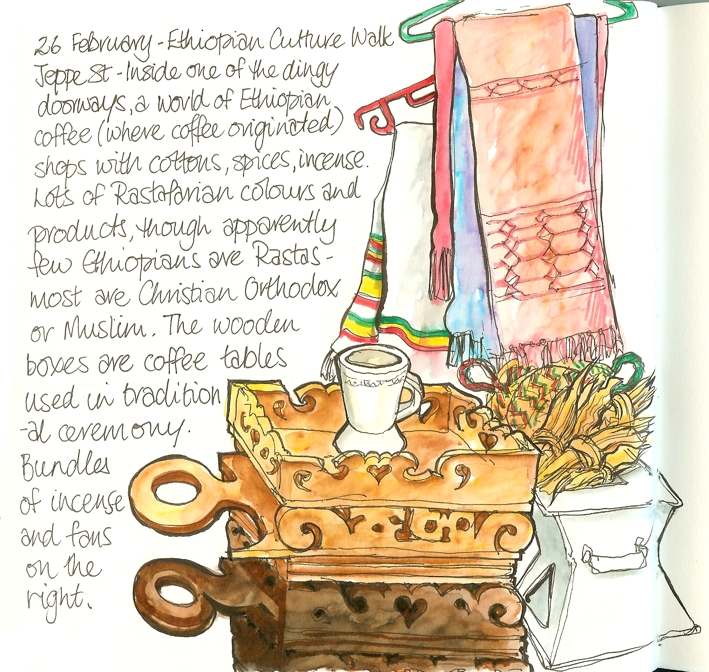 26 February - Ethiopian Culture Walk
Jeppe St - Inside one of the dingy
doorways, a world of Ethiopian
coffee (where coffee originated)
shops with cottons, spices, incense.
Lots of Rastafarian colours and
products, though apparently
few Ethiopians are Rastas -
most are Christian Orthodox
or Muslim. The wooden
boxes are coffee tables
used in tradition
-al ceremony.
Bundles
of incense
and fans
on the
right.